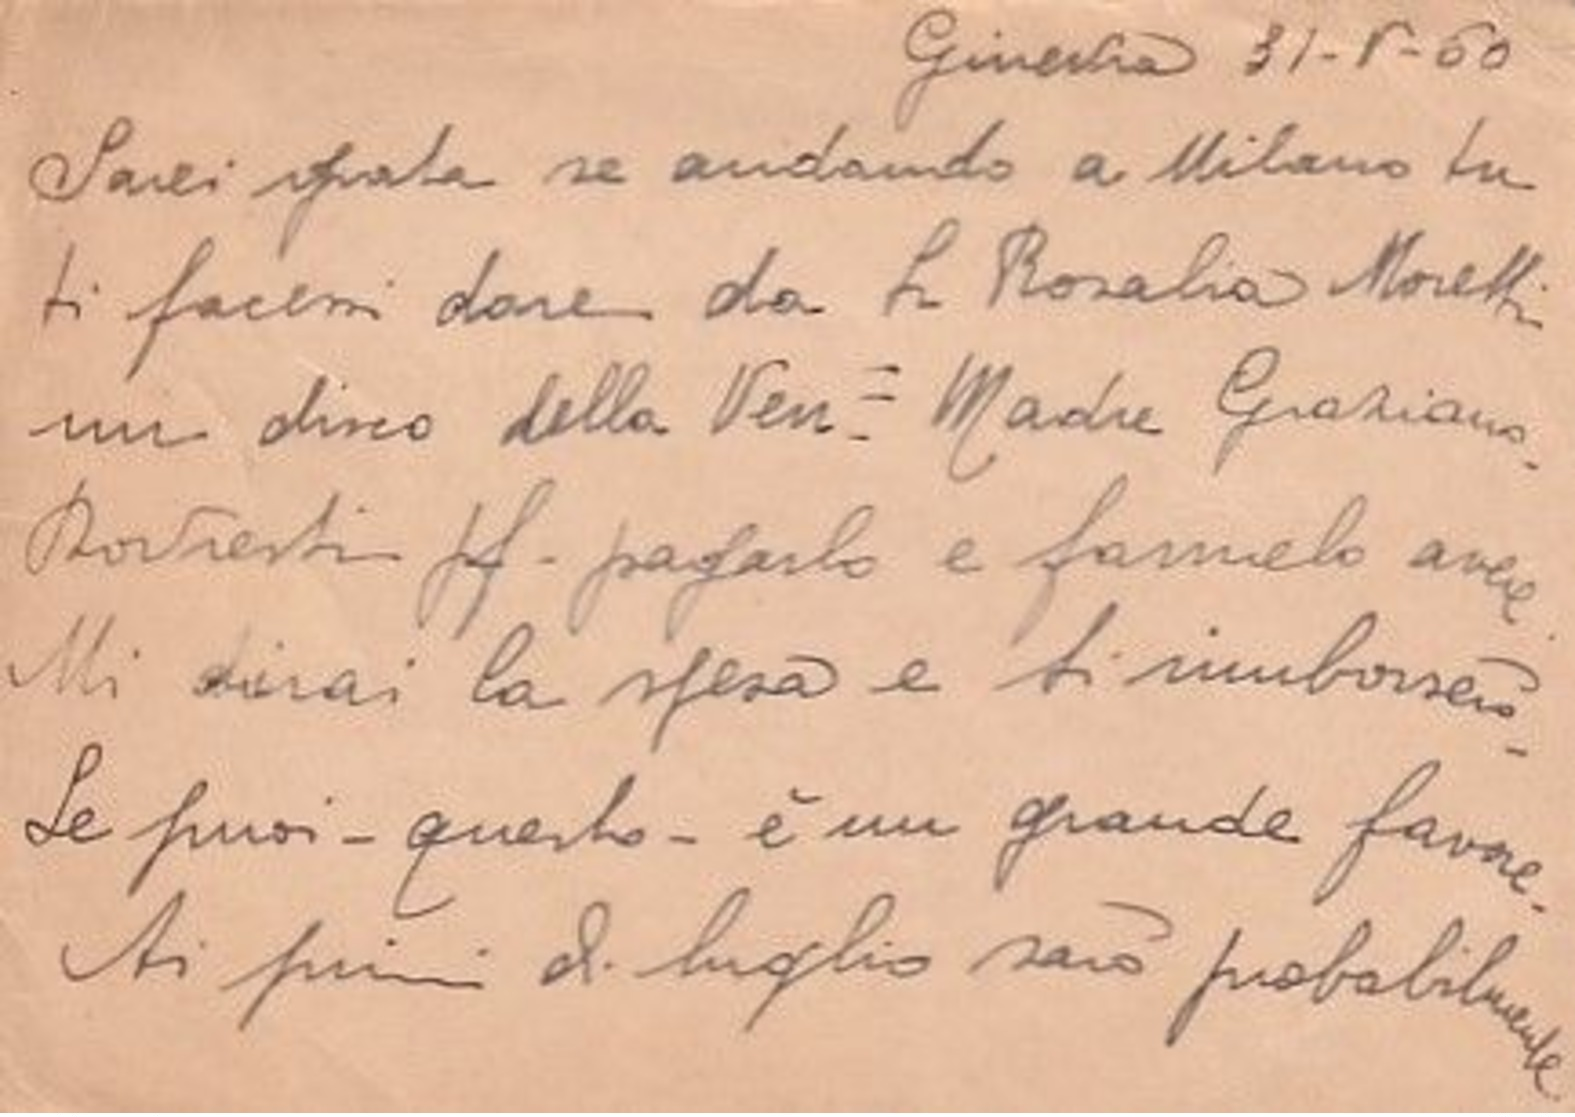 Ginestra 31-V-60
Sarei grata se andando a Milano tu
ti facessi dare da Sr Rosalia Moretti
un disco della Ven. Madre Graziano.
Dovresti pf. pagarlo e farmelo avere.
Mi dirai la spesa e ti rimborserò.
Se puoi - questo - è un grande favore.
Ai primi di luglio sarò probabilmente